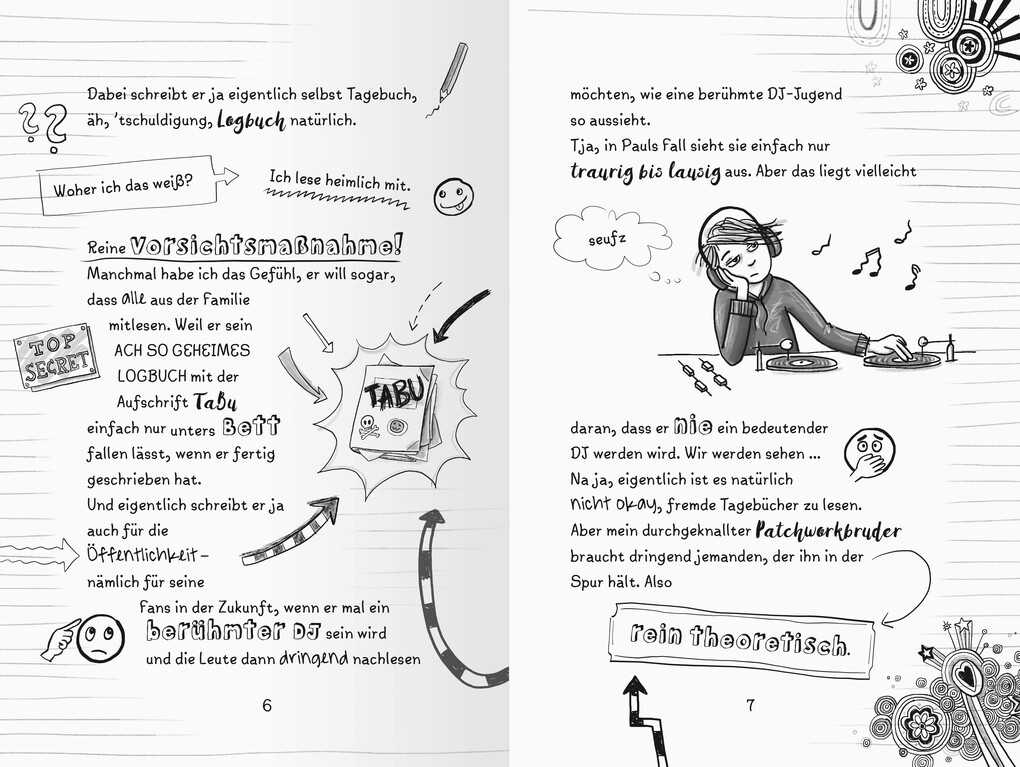 Dabei schreibt er ja eigentlich selbst Tagebuch,
äh, ’tschuldigung, Logbuch natürlich.
??
Woher ich das weiß?
Ich lese heimlich mit.
Reine Vorsichtsmaßnahme!
Manchmal habe ich das Gefühl, er will sogar,
dass alle aus der Familie
mitlesen. Weil er sein
ACH SO GEHEIMES
LOGBUCH mit der
Aufschrift TaBu
einfach nur unters Bett
fallen lässt, wenn er fertig
geschrieben hat.
Und eigentlich schreibt er ja
auch für die
Öffentlichkeit –
nämlich für seine
Fans in der Zukunft, wenn er mal ein
berühmter DJ sein wird
und die Leute dann dringend nachlesen
TOP
SECRET
TABU
6
möchten, wie eine berühmte DJ-Jugend
so aussieht.
Tja, in Pauls Fall sieht sie einfach nur
traurig bis lausig aus. Aber das liegt vielleicht
seufz
daran, dass er nie ein bedeutender
DJ werden wird. Wir werden sehen ...
Na ja, eigentlich ist es natürlich
nicht okay, fremde Tagebücher zu lesen.
Aber mein durchgeknallter Patchworkbruder
braucht dringend jemanden, der ihn in der
Spur hält. Also
rein theoretisch.
7